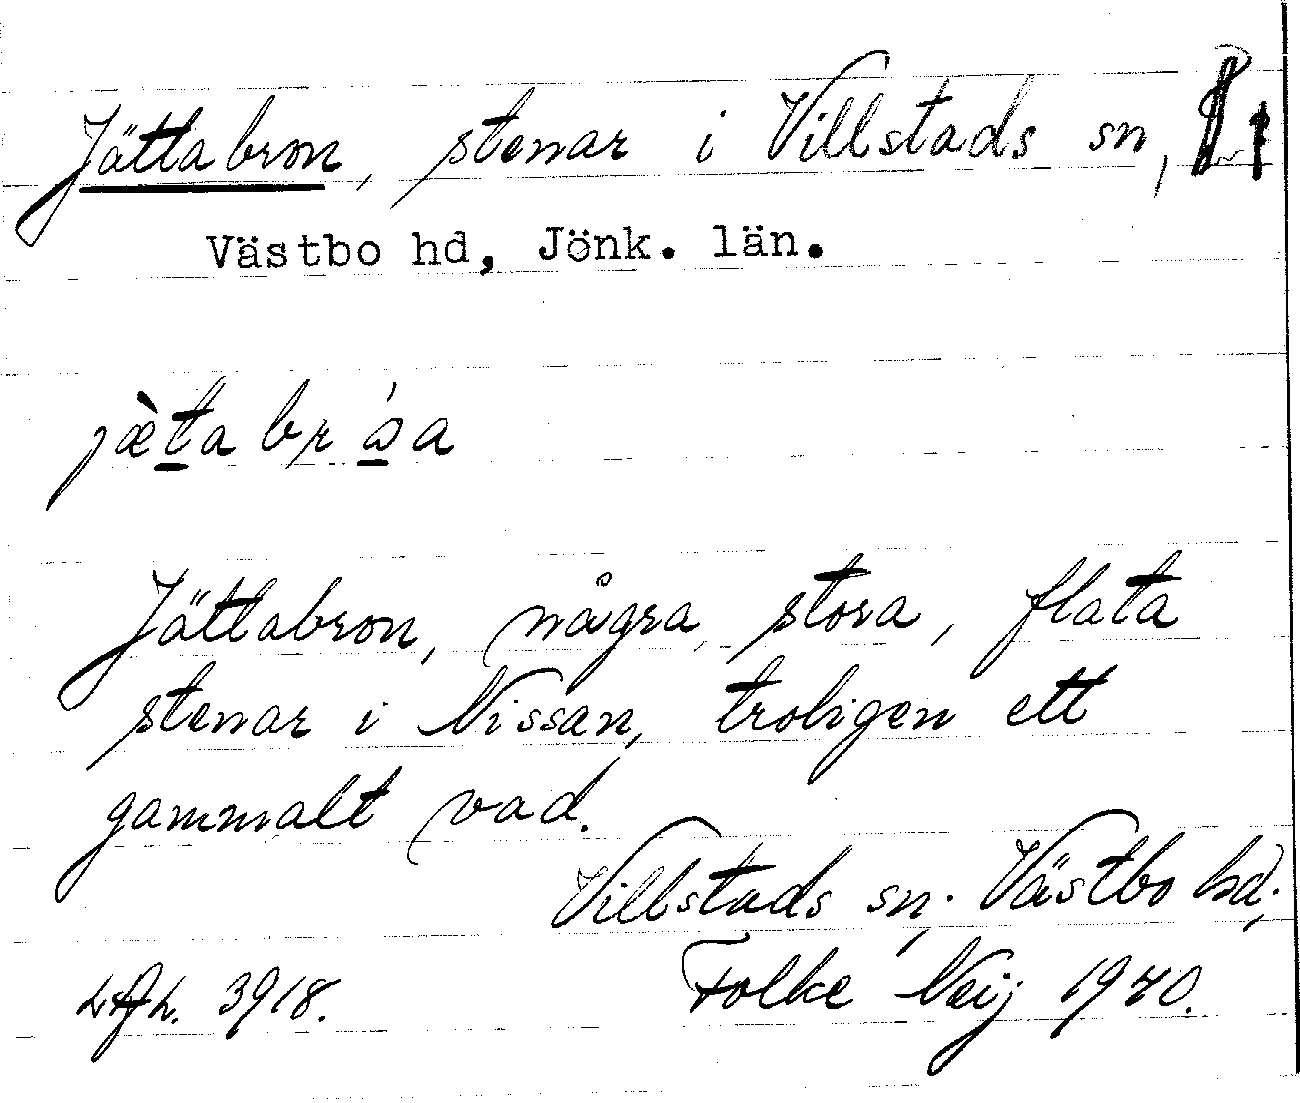 Jättabron, stenar i Villstads sn,
Västbo hd, Jönk. län.
Jättabron, några stora, flata
stenar i Nissan, troligen ett
gammalt vad.
Villstads sn; Västbo hd;
3918. Folke Neij 1940.